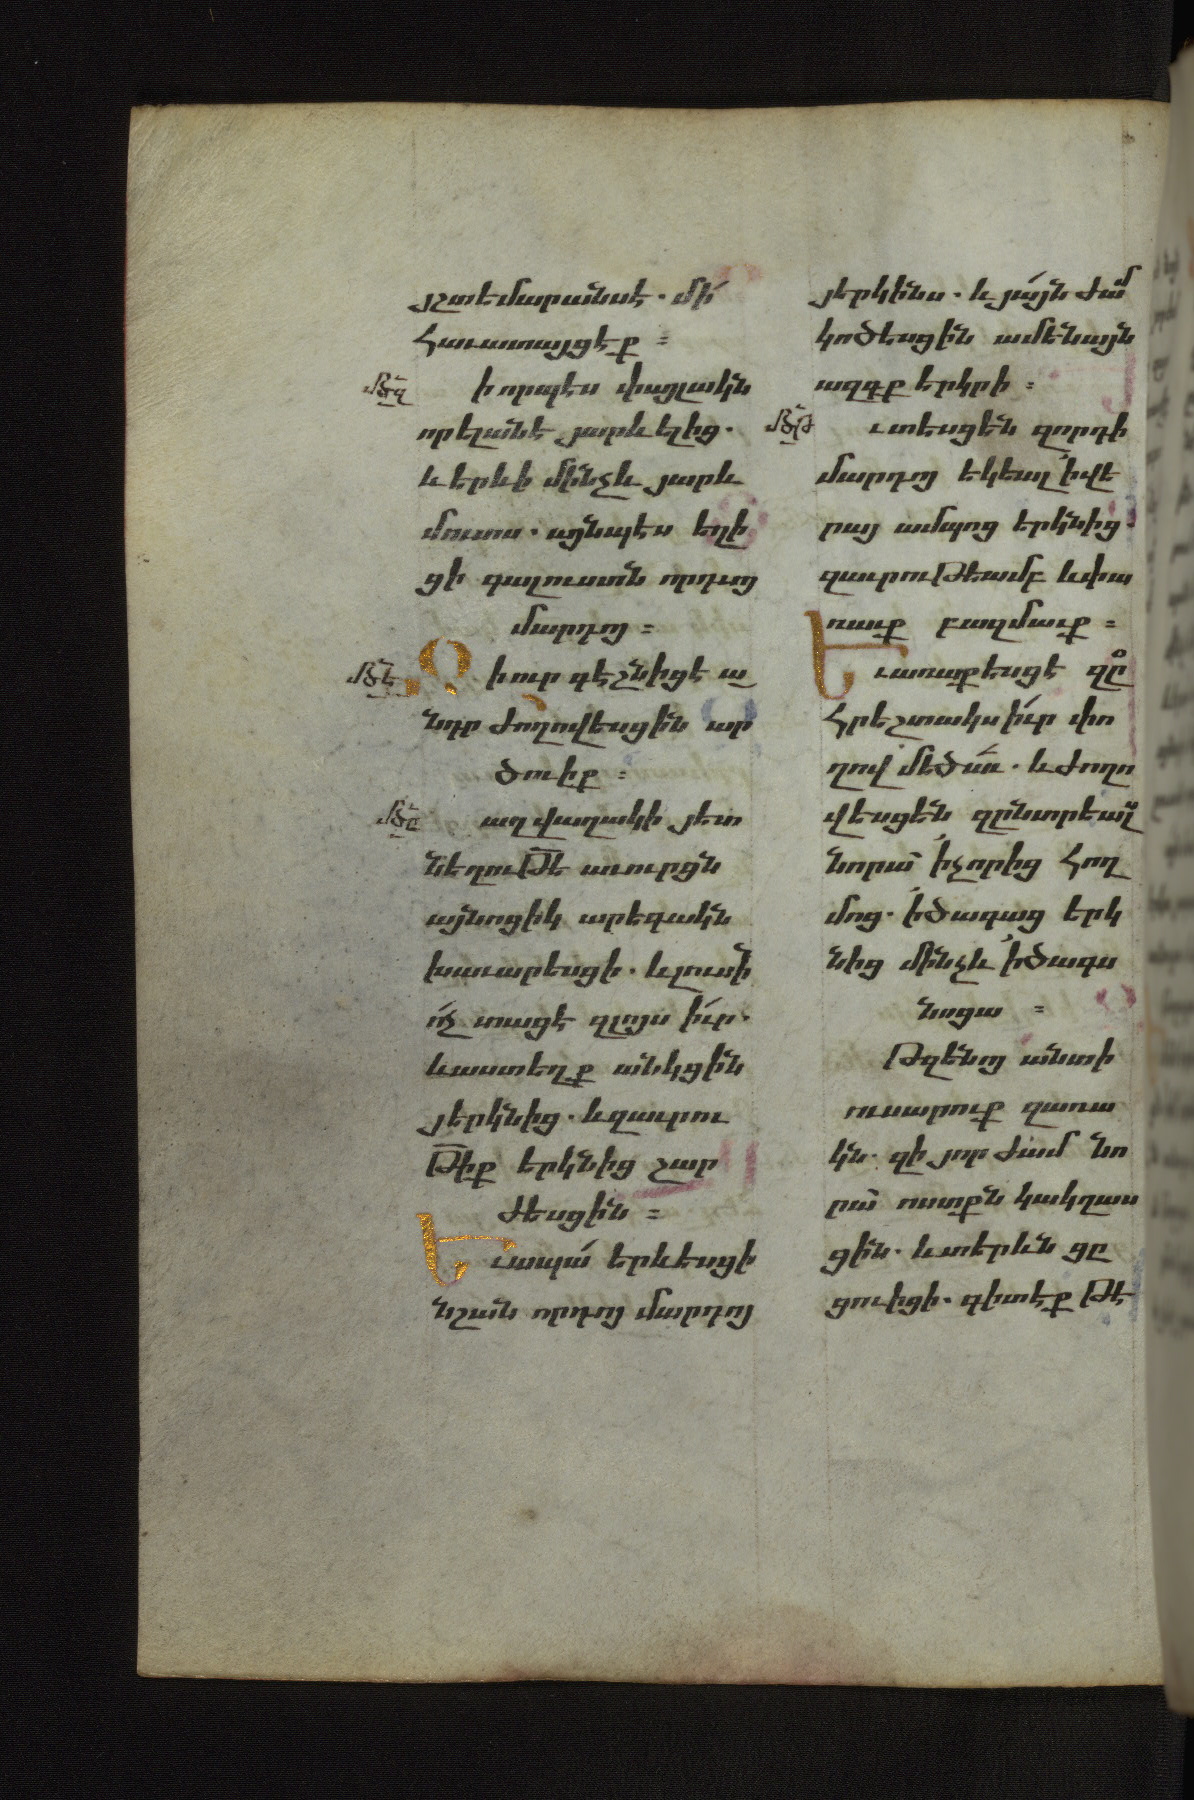 յշտեմարանսէ. մի՛
հաւատայցէք:
մծզ ի որպես փայլակն
որելանէ յարևելից.
և երևի մինչև յարև
մուտս. այնպես եղի
ցի գալուստն որդւոյ
մարդոյ:
մծէ Զ ի ուր գէշնիցէ ա
նդր ժողովեսցին ար
ծուիք:
մծը աղվաղակի յետ
նեղութե աւուրցն
այնոցիկ արեգակն
խաւարեսցի. ևլուսի
ոչ տացէ զլոյս իւր.
ևաստեղք անկցին
յերկնից. ևզաւրու
թիք երկնից շար
ժեսցին:
Ե ւապա երևեսցի
նշան որդոյ մարդոյ
յերկինս. և յայն ժմ
կոծեսցին ամենայն
ազգք երկրի:
մծթ ւտեսցեն զորդի
մարդոյ եկեալ իվե
րայ ամպոց երկնից.
զաւրութեամբ ևփա
ռաւք բազմաւք:
Ե ւառաքեսցէ զը
հրեշտակս իւր փո
ղով մեծաւ. և ժողո
վեսցեն զընտրեալ
նորա իչորից հող
մոց. իծագաց երկ
նից մինչև իծագս
նոցա:
Թզենոյ անտի
ուսարուք զառա
կն. զի յոր ժամ նո
րա ոստքն կակղաս
ցին. ևտերևն ցը
ցուիցի. գիտէք թէ